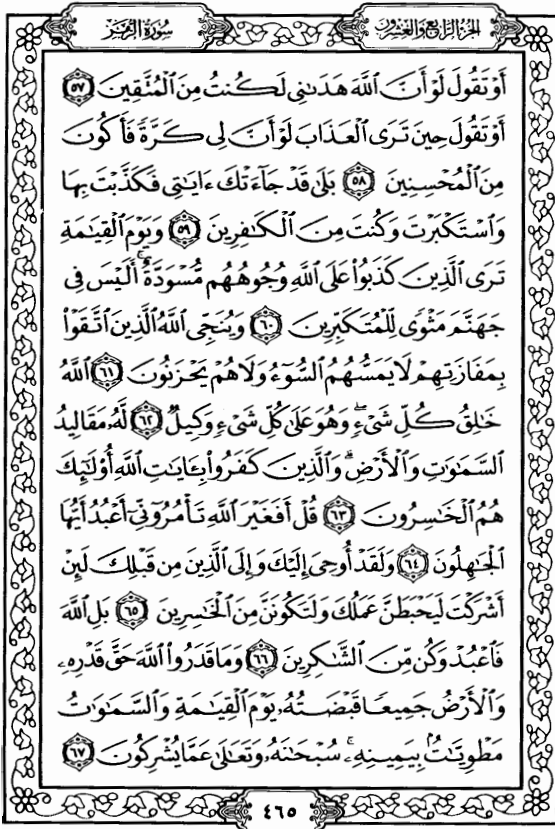 الجزء الرابع والعشرون
سورة الزمر
أَوْ تَقُولَ لَوْ أَنَّ ٱللَّهَ هَدَىٰنِى لَكُنتُ مِنَ ٱلْمُتَّقِينَ ٥٧
أَوْ تَقُولَ حِينَ تَرَى ٱلْعَذَابَ لَوْ أَنَّ لِى كَرَّةً فَأَكُونَ
مِنَ ٱلْمُحْسِنِينَ ٥٨ بَلَىٰ قَدْ جَآءَتْكَ ءَايَٰتِى فَكَذَّبْتَ بِهَا
وَٱسْتَكْبَرْتَ وَكُنتَ مِنَ ٱلْكَٰفِرِينَ ٥٩ وَيَوْمَ ٱلْقِيَٰمَةِ
تَرَى ٱلَّذِينَ كَذَبُوا۟ عَلَى ٱللَّهِ وُجُوهُهُم مُّسْوَدَّةٌ ۚ أَلَيْسَ فِى
جَهَنَّمَ مَثْوًى لِّلْمُتَكَبِّرِينَ ٦٠ وَيُنَجِّى ٱللَّهُ ٱلَّذِينَ ٱتَّقَوْا۟
بِمَفَازَتِهِمْ لَا يَمَسُّهُمُ ٱلسُّوٓءُ وَلَا هُمْ يَحْزَنُونَ ٦١ ٱللَّهُ
خَٰلِقُ كُلِّ شَىْءٍ ۖ وَهُوَ عَلَىٰ كُلِّ شَىْءٍ وَكِيلٌ ٦٢ لَّهُۥ مَقَالِيدُ
ٱلسَّمَٰوَٰتِ وَٱلْأَرْضِ ۗ وَٱلَّذِينَ كَفَرُوا۟ بِـَٔايَٰتِ ٱللَّهِ أُو۟لَٰٓئِكَ
هُمُ ٱلْخَٰسِرُونَ ٦٣ قُلْ أَفَغَيْرَ ٱللَّهِ تَأْمُرُوٓنِّىٓ أَعْبُدُ أَيُّهَا
ٱلْجَٰهِلُونَ ٦٤ وَلَقَدْ أُوحِىَ إِلَيْكَ وَإِلَى ٱلَّذِينَ مِن قَبْلِكَ لَئِنْ
أَشْرَكْتَ لَيَحْبَطَنَّ عَمَلُكَ وَلَتَكُونَنَّ مِنَ ٱلْخَٰسِرِينَ ٦٥ بَلِ ٱللَّهَ
فَٱعْبُدْ وَكُن مِّنَ ٱلشَّٰكِرِينَ ٦٦ وَمَا قَدَرُوا۟ ٱللَّهَ حَقَّ قَدْرِهِۦ
وَٱلْأَرْضُ جَمِيعًا قَبْضَتُهُۥ يَوْمَ ٱلْقِيَٰمَةِ وَٱلسَّمَٰوَٰتُ
مَطْوِيَّٰتٌۢ بِيَمِينِهِۦ ۚ سُبْحَٰنَهُۥ وَتَعَٰلَىٰ عَمَّا يُشْرِكُونَ ٦٧
٤٦٥